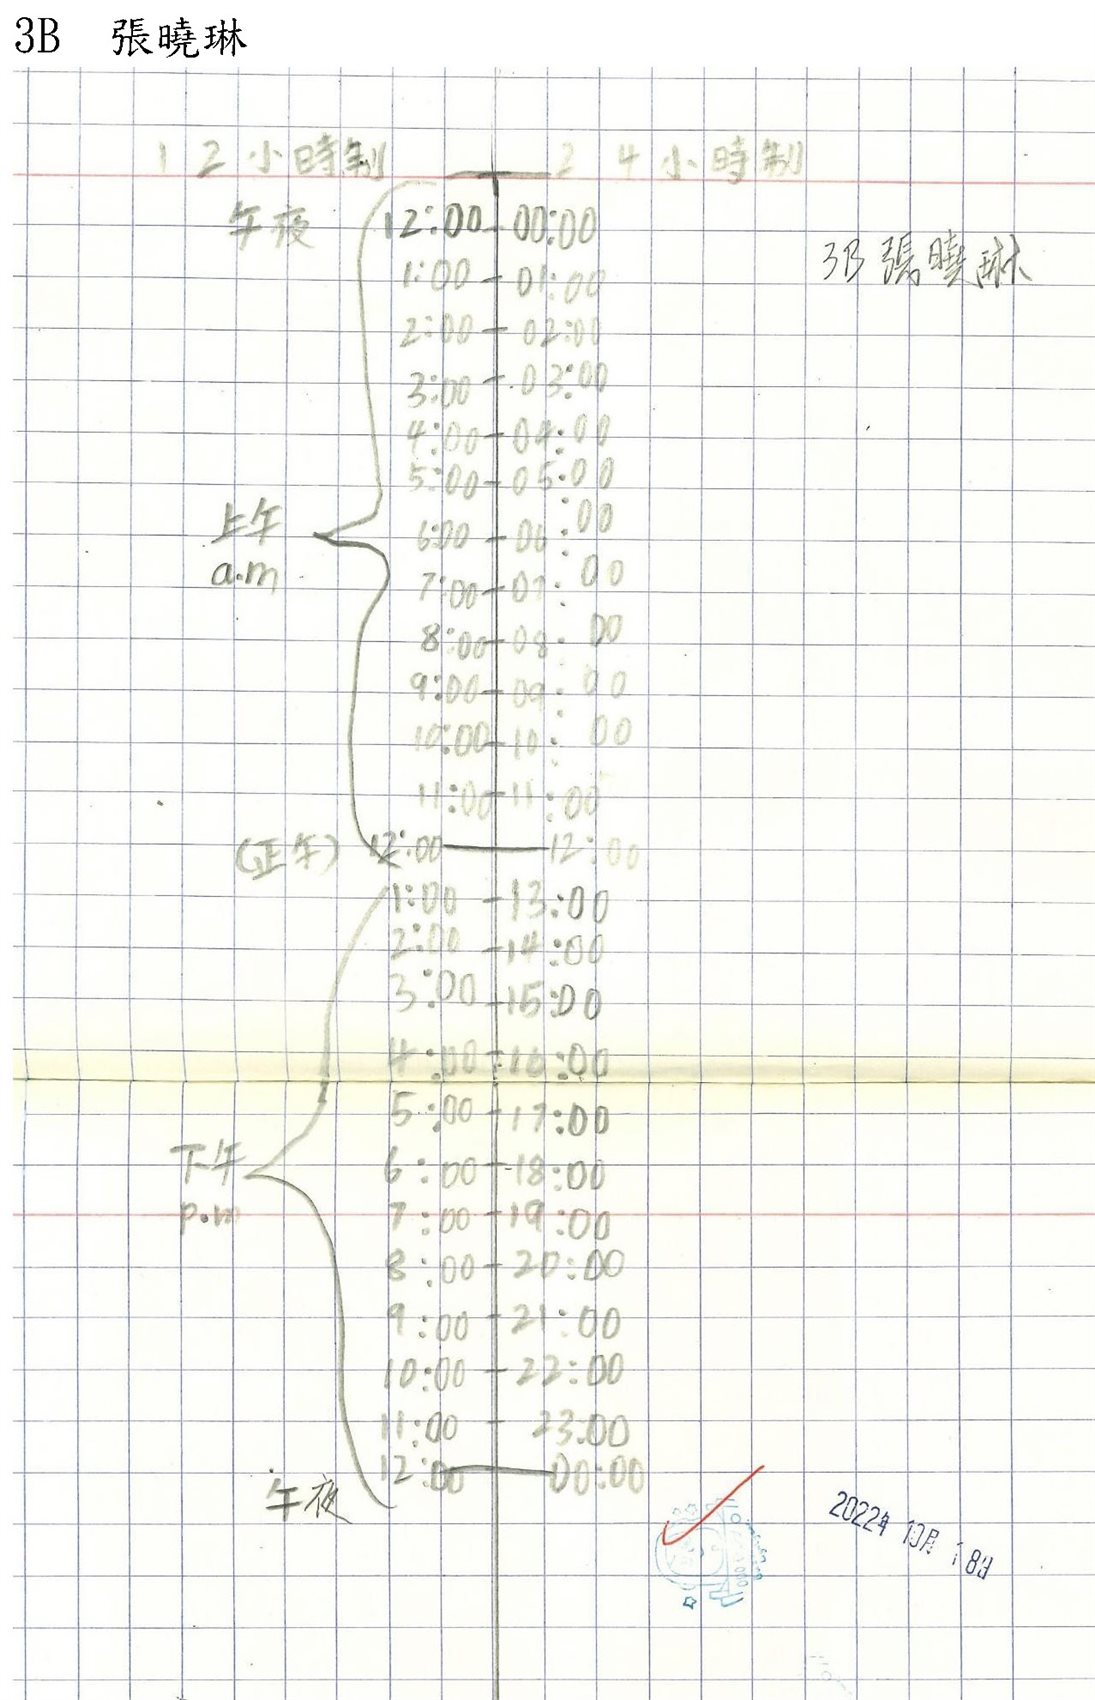 3B 張曉琳
12小時制 24小時制
午夜 12:00 00:00
3B 張曉琳
1:00 01:00
2:00 02:00
3:00 03:00
4:00 04:00
5:00 05:00
上午 6:00 06:00
a.m 7:00 07:00
8:00 08:00
9:00 09:00
10:00 10:00
11:00 11:00
(正午) 12:00 12:00
1:00 13:00
2:00 14:00
3:00 15:00
4:00 16:00
5:00 17:00
下午 6:00 18:00
p.m 7:00 19:00
8:00 20:00
9:00 21:00
10:00 22:00
11:00 23:00
午夜 12:00 00:00
2022年10月18日